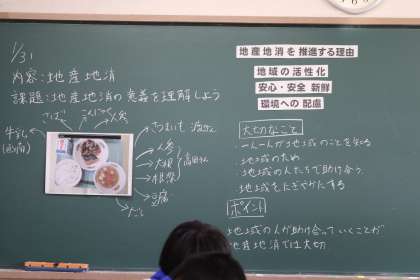 1/31
内容:地産地消
課題:地産地消の意義を理解しよう
さば
こんにゃく
人参
牛乳
さつまいも
人参
大根
豆腐
地産地消を推進する理由
地域の活性化
安心・安全 新鮮
環境への配慮
大切なこと
・一人一人が地域のことを知る
・地域のため
・地域の人たちで助け合う
・地域をにぎやかにする
ポイント
地域の人が助け合っていくことが
地産地消では大切